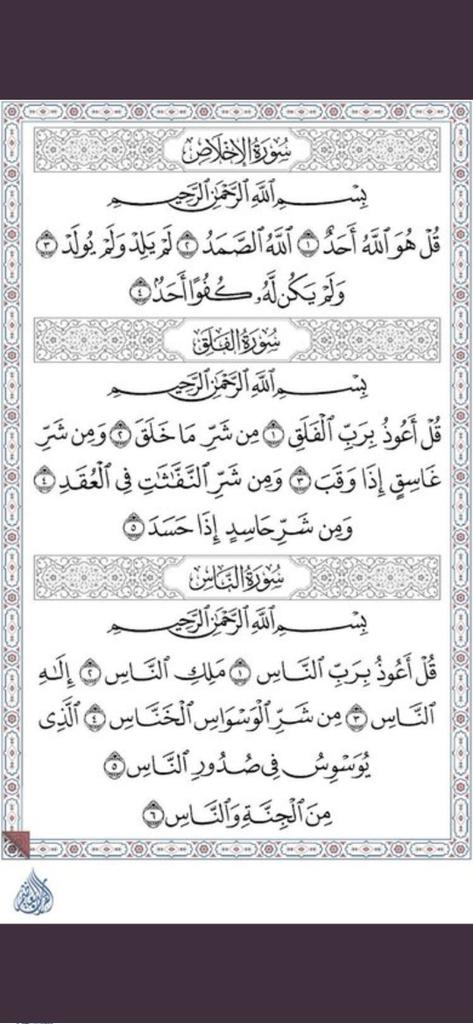 سُورَةُ الإِخْلَاصِ
بِسْمِ اللَّهِ الرَّحْمَٰنِ الرَّحِيمِ
قُلْ هُوَ اللَّهُ أَحَدٌ ١ اللَّهُ الصَّمَدُ ٢ لَمْ يَلِدْ وَلَمْ يُولَدْ ٣
وَلَمْ يَكُن لَّهُۥ كُفُوًا أَحَدٌۢ ٤
سُورَةُ الفَلَقِ
بِسْمِ اللَّهِ الرَّحْمَٰنِ الرَّحِيمِ
قُلْ أَعُوذُ بِرَبِّ الْفَلَقِ ١ مِن شَرِّ مَا خَلَقَ ٢ وَمِن شَرِّ
غَاسِقٍ إِذَا وَقَبَ ٣ وَمِن شَرِّ النَّفَّٰثَٰتِ فِي الْعُقَدِ ٤
وَمِن شَرِّ حَاسِدٍ إِذَا حَسَدَ ٥
سُورَةُ النَّاسِ
بِسْمِ اللَّهِ الرَّحْمَٰنِ الرَّحِيمِ
قُلْ أَعُوذُ بِرَبِّ النَّاسِ ١ مَلِكِ النَّاسِ ٢ إِلَٰهِ
النَّاسِ ٣ مِن شَرِّ الْوَسْوَاسِ الْخَنَّاسِ ٤ الَّذِي
يُوَسْوِسُ فِي صُدُورِ النَّاسِ ٥
مِنَ الْجِنَّةِ وَالنَّاسِ ٦